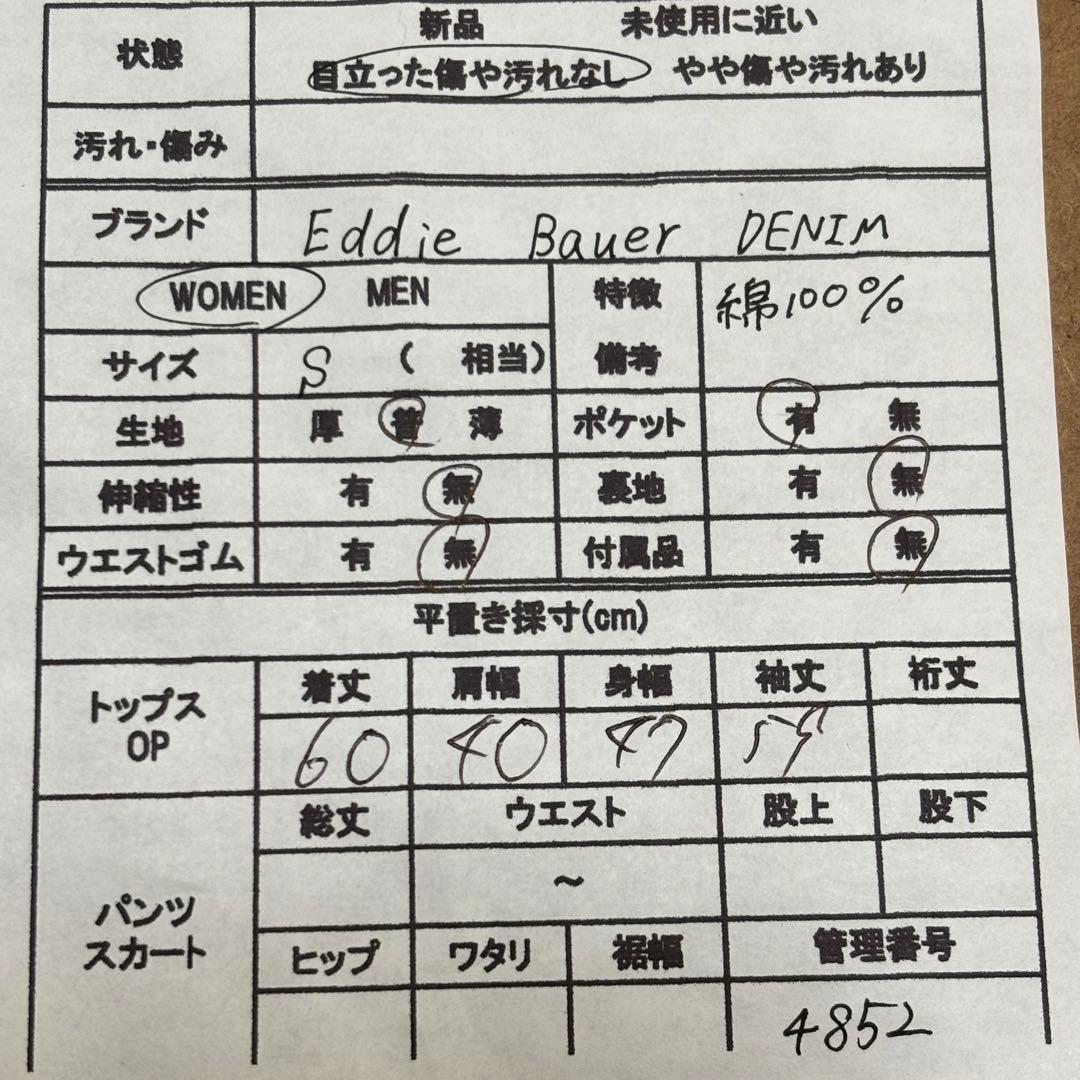 状態 新品 未使用に近い
目立った傷や汚れなし やや傷や汚れあり
汚れ・傷み
ブランド Eddie Bauer DENIM
WOMEN MEN 特徴 綿100%
サイズ S ( 相当) 備考
生地 厚 普 薄 ポケット 有 無
伸縮性 有 無 裏地 有 無
ウエストゴム 有 無 付属品 有 無
平置き採寸(cm)
トップス OP 着丈 肩幅 身幅 袖丈 裄丈
60 40 47
パンツ スカート 総丈 ウエスト 股上 股下
~
ヒップ ワタリ 裾幅 管理番号
4852